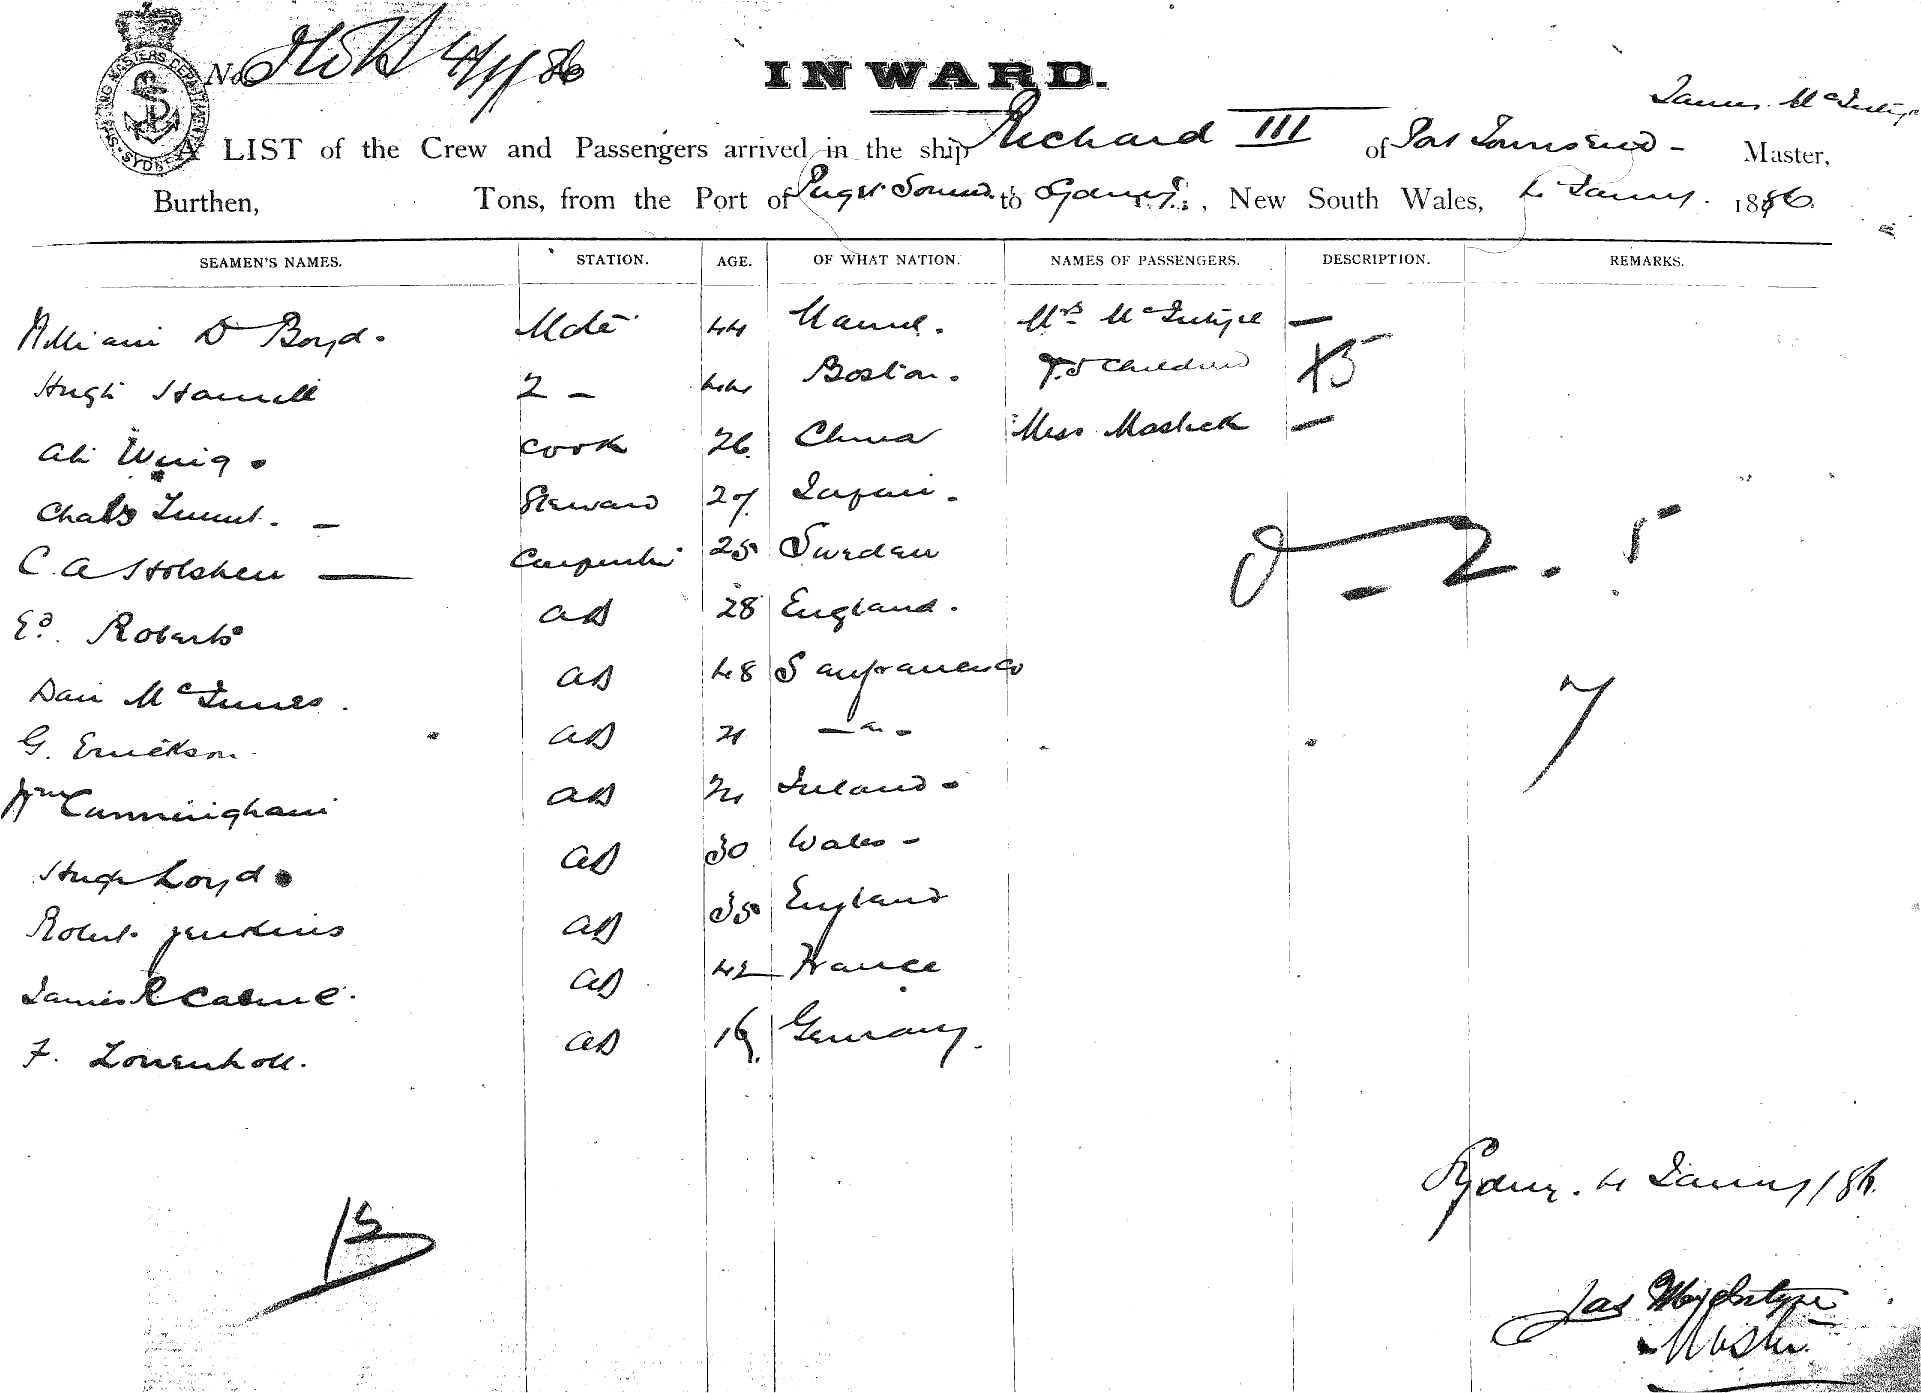 No. 4/1/86
INWARD.
SHIPPING MASTERS DEPARTMENT SYDNEY
James McIntyre
A LIST of the Crew and Passengers arrived in the ship Richard III of Port Townsend - Master,
Burthen, Tons, from the Port of Puget Sound to Sydney, New South Wales, 4 Jany. 1886
SEAMEN'S NAMES. STATION. AGE. OF WHAT NATION. NAMES OF PASSENGERS. DESCRIPTION. REMARKS.
William D Boyd. Mate 44 Maine. Mrs McIntyre —
Hugh 2 - 44 Boston. & 5 Children X5
Ah Wing. cook 26 China Miss —
Chas Steward 27. Japan.
C. A Holsken — Carpenter 25 Sweden
2. 5
Ed. Roberts AB 28 England.
Dan McInnes. AB 48 Sanfrancisco
7
G. Erickson. AB 21 — " -
Wm Cunningham AB 21 Ireland -
Hugh Loyd. AB 30 Wales -
Robert Jenkins AB 35 England
James R AB 42 France
F. AB 19. Germany.
Sydney. 4 Jany / 86.
13
Jas McIntyre
Master